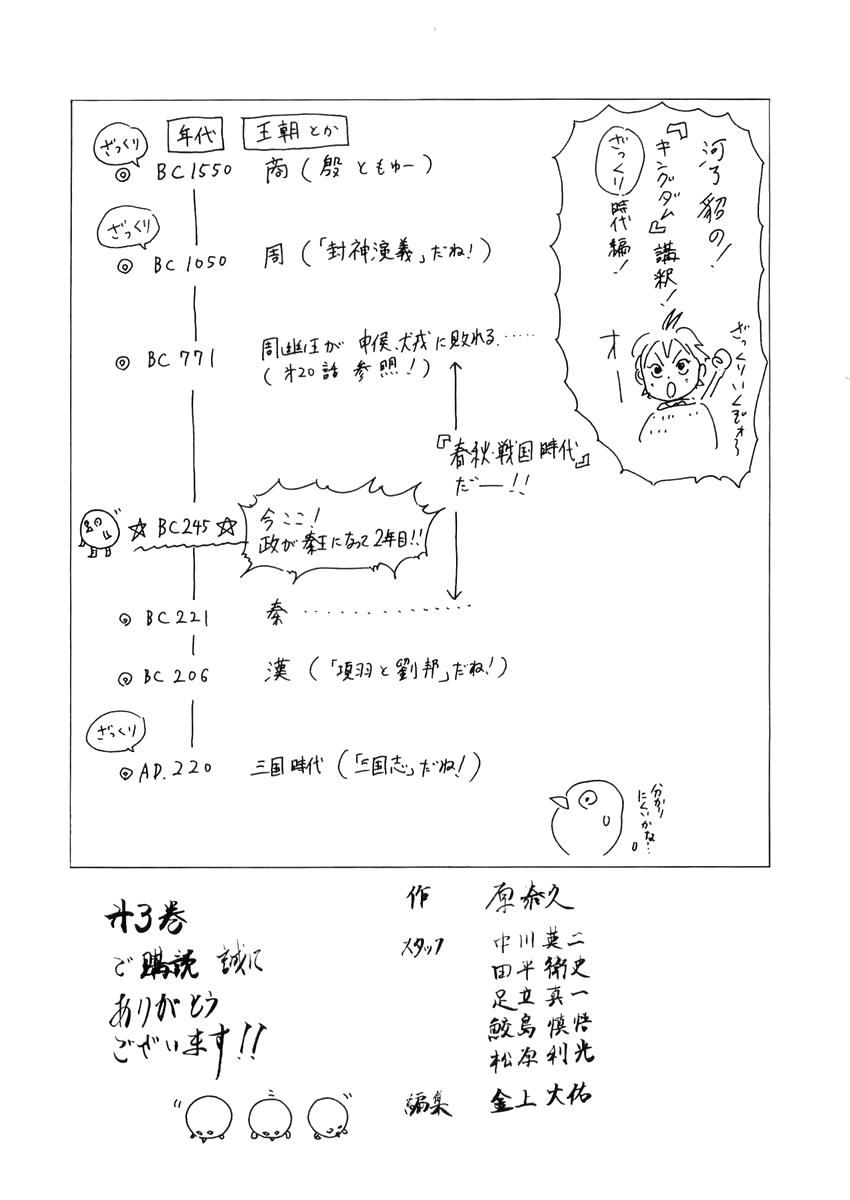 河了貂の!
『キングダム』講釈!
ざっくり時代編!
ざっくりいくぞォ〜
オー
年代 王朝とか
ざっくり
BC1550 商(殷ともゆー)
ざっくり
BC1050 周(「封神演義」だね!)
BC771 周幽王が申侯、犬戎に敗れる……
(第20話参照!)
『春秋・戦国時代』
だー!!
☆BC245☆
今ここ!
政が秦王になって2年目!!
BC221 秦……………
BC206 漢(「項羽と劉邦」だね!)
ざっくり
AD.220 三国時代(「三国志」だね!)
分かり
にくいかな…
第3巻
ご購読誠に
ありがとう
ございます!!
作 原泰久
スタッフ 中川英二
田平衛史
足立真一
鮫島慎悟
松原利光
編集 金上大佑